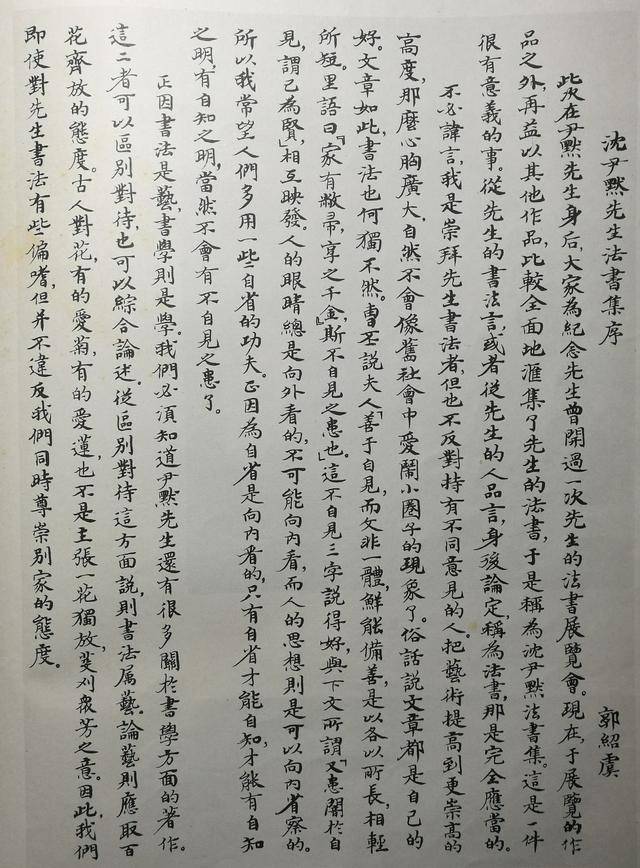 沈尹默先生法書集序
郭紹虞
此次在尹默先生身后，大家為紀念先生曾開過一次先生的法書展覽會。現在，于展覽的作
品之外，再益以其他作品，比較全面地滙集了先生的法書，于是稱為沈尹默法書集。這是一件
很有意義的事。從先生的書法言，或者從先生的人品言，身後論定，稱為法書，那是完全應當的。
不必諱言，我是崇拜先生書法者，但也不反對持有不同意見的人。把藝術提高到更崇高的
高度，那麼心胸廣大，自然不會像舊社會中愛鬧小圈子的現象了。俗話說文章都是自己的
好。文章如此，書法也何獨不然。曹丕說夫人「善于自見，而文非一體，鮮能備善，是以各以所長，相輕
所短。里語曰『家有敝帚，享之千金』，斯不自見之患也。」這不自見三字說得好，與下文所謂「又患闇於自
見，謂己為賢」，相互映發。人的眼睛總是向外看的，不可能向內看，而人的思想則是可以向內省察的。
所以我常望人們多用一些自省的功夫。正因為自省是向內看的，只有自省才能自知，才能有自知
之明，有自知之明，當然不會有不自見之患了。
正因書法是藝，書學則是學。我們必須知道尹默先生還有很多關於書學方面的著作。
這二者可以區別對待，也可以綜合論述。從區別對待這方面說，則書法屬藝。論藝則應取百
花齊放的態度。古人對花，有的愛菊，有的愛蓮，也不是主張一花獨放，芟刈衆芳之意。因此，我們
即使對先生書法有些偏嗜，但并不違反我們同時尊崇別家的態度。